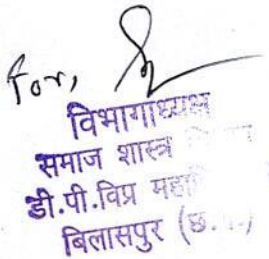 For,
विभागाध्यक्ष
समाज शास्त्र
डी.पी.विप्र
बिलासपुर (छ.